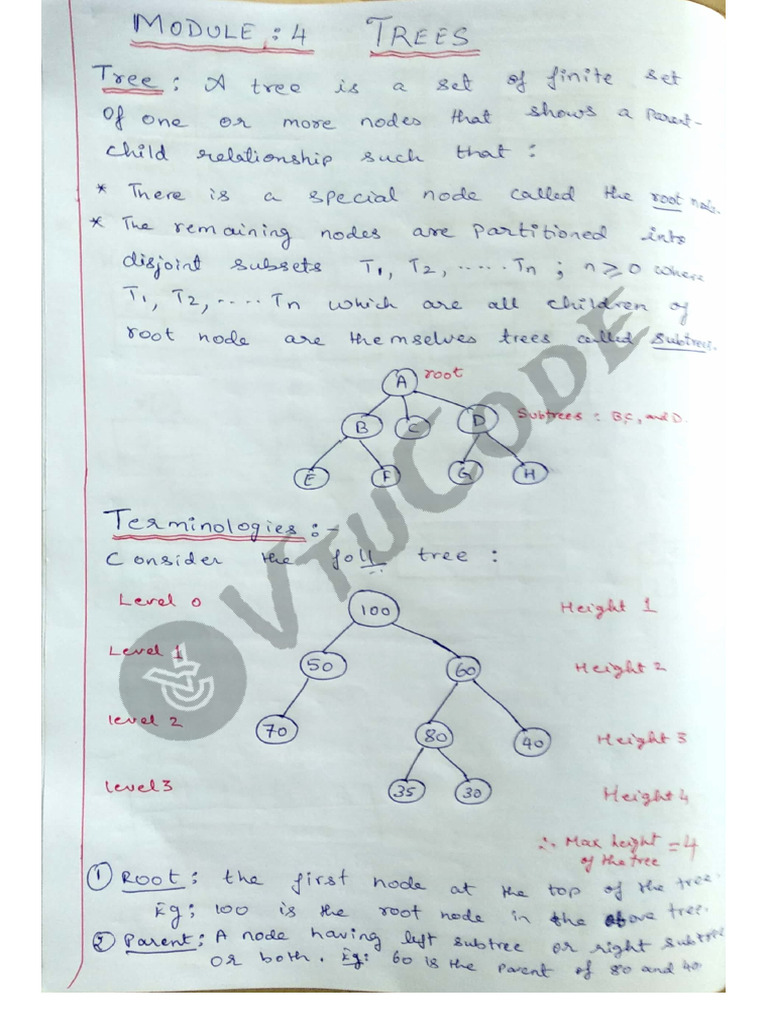 MODULE : 4 TREES
Tree : A tree is a set of finite set
of one or more nodes that shows a parent-
child relationship such that :
* There is a special node called the root node.
* The remaining nodes are partitioned into
disjoint subsets T1, T2, ..... Tn ; n ≥ 0 where
T1, T2, .... Tn which are all children of
root node are themselves trees called subtrees.
A root
B C D Subtrees : B, C, and D.
E F G H
Terminologies :-
Consider the foll tree :
Level 0 100 Height 1
Level 1 50 60 Height 2
level 2 70 80 40 Height 3
Level 3 35 30 Height 4
∴ Max height = 4
of the tree
① Root : the first node at the top of the tree.
Eg : 100 is the root node in the above tree.
② Parent : A node having left subtree or right subtree
or both. Eg : 60 is the parent of 80 and 40
VTUCODE